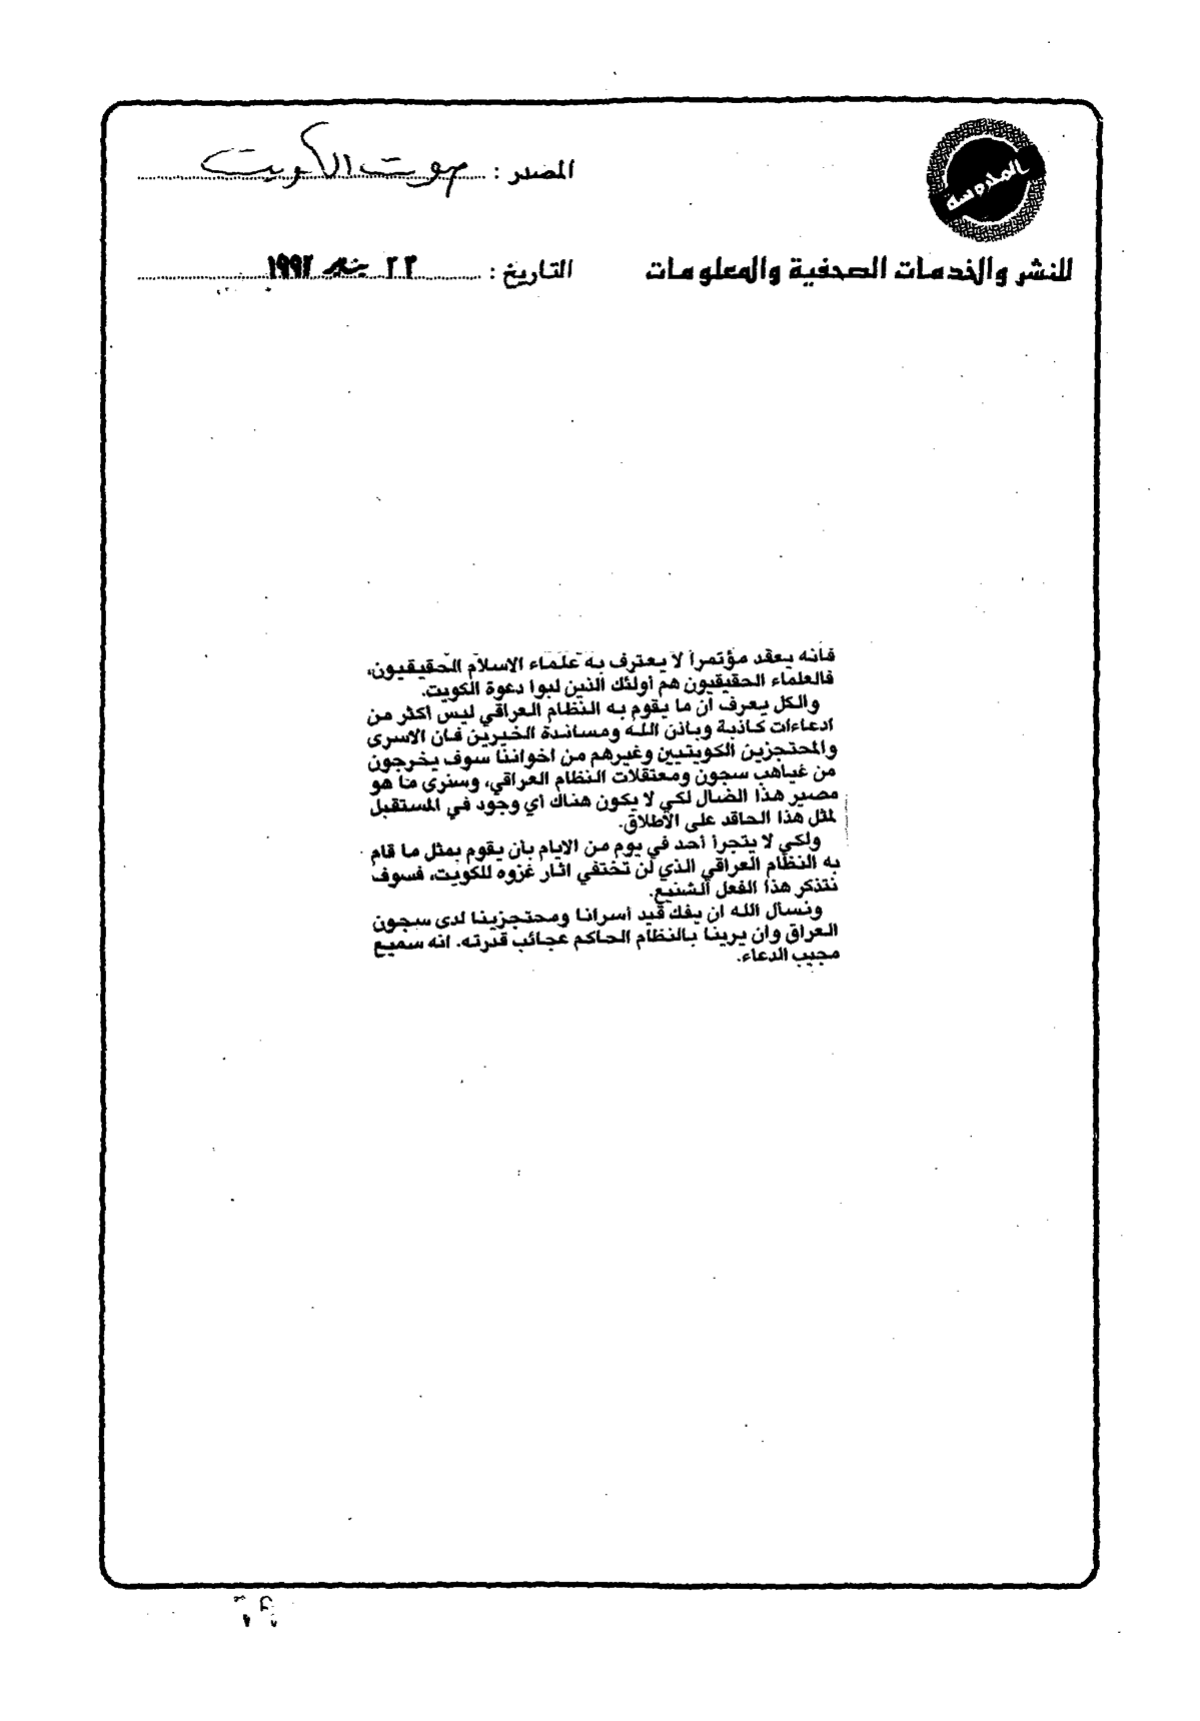 المدروسة
المصدر : صوت الكويت
للنشر والخدمات الصحفية والمعلومات
التاريخ : ٢٢ يناير ١٩٩٢
فانه يعقد مؤتمراً لا يعترف به علماء الاسلام الحقيقيون،
فالعلماء الحقيقيون هم أولئك الذين لبوا دعوة الكويت.
والكل يعرف ان ما يقوم به النظام العراقي ليس اكثر من
ادعاءات كاذبة وباذن الله ومساندة الخيرين فان الاسرى
والمحتجزين الكويتيين وغيرهم من اخواننا سوف يخرجون
من غياهب سجون ومعتقلات النظام العراقي، وسنرى ما هو
مصير هذا الضال لكي لا يكون هناك أي وجود في المستقبل
لمثل هذا الحاقد على الاطلاق.
ولكي لا يتجرأ أحد في يوم من الايام بان يقوم بمثل ما قام
به النظام العراقي الذي لن تختفي اثار غزوه للكويت، فسوف
نتذكر هذا الفعل الشنيع.
ونسأل الله ان يفك قيد أسرانا ومحتجزينا لدى سجون
العراق وان يرينا بالنظام الحاكم عجائب قدرته. انه سميع
مجيب الدعاء.